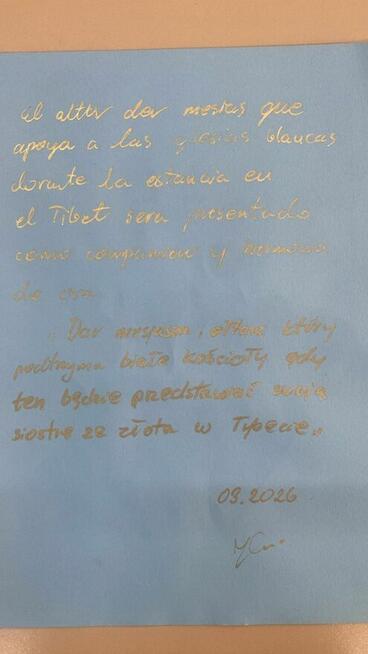 El altar dar mesias que
apoya a las iglesias blancas
dorante la estancia en
el Tibet sera presentado
como companion y
de
"Dar mesjasza, ołtarz który
podtrzyma białe kościoły gdy
ten będzie przedstawiać swoją
siostrę ze złota w Tybecie„
09.2026